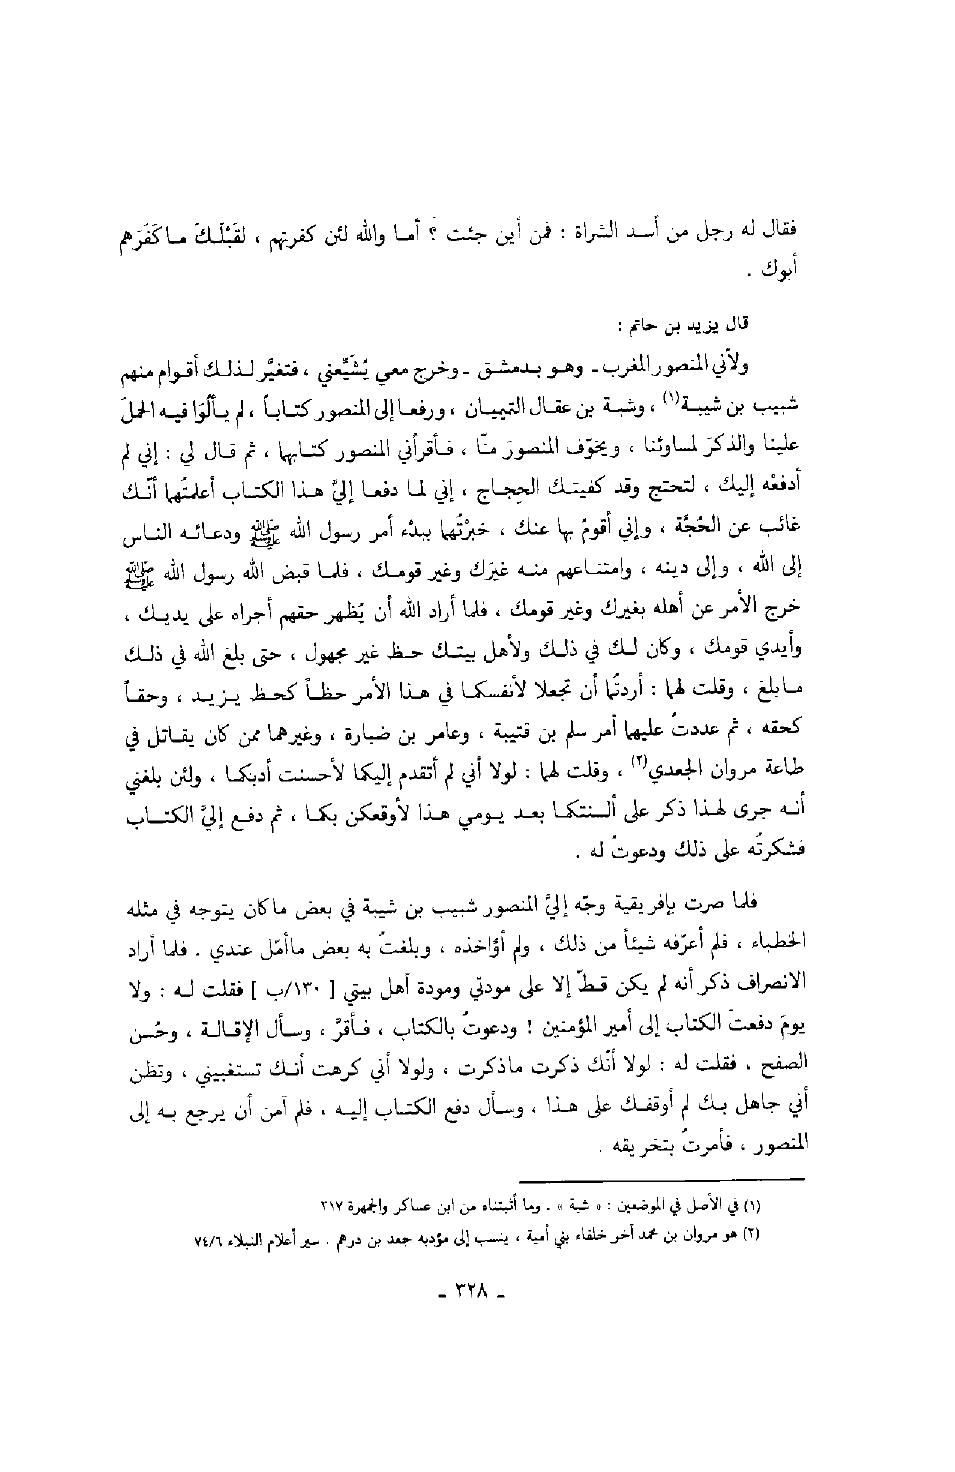 فقال له رجل من أسد الشراة : فمن أين جئت ؟ أما والله لئن كفرتهم ، لقَبْلَكَ ما كَفَرَهم
أبوك .
قال يزيد بن حاتم :
ولاَّني المنصور المغرب ـ وهو بدمشق ـ وخرج معي يُشَيِّعني ، فتغيَّر لذلك أقوام منهم
شبيب بن شيبة(١) ، وشبة بن عقال التميميان ، ورفعا إلى المنصور كتاباً ، لم يألُوَا فيه الحملَ
علينا والذكرَ لمساوئنا ، ويخوّف المنصورَ منّا ، فأقرأني المنصور كتابهما ، ثم قال لي : إني لم
أدفعْه إليك ، لتحتج وقد كفيتك الحِجاج ، إني لما دفعا إليَّ هذا الكتاب أعلمتُهما أنّك
غائب عن الحُجَّة ، وإني أقومُ بها عنك ، خبَّرْتُهما ببدْء أمر رسول الله ﷺ ودعائه الناس
إلى الله ، وإلى دينه ، وامتناعهم منه غيرَك وغير قومك ، فلما قبض الله رسول الله ﷺ
خرج الأمر عن أهله بغيرك وغير قومك ، فلما أراد الله أن يُظهر حقهم أجراه على يديك ،
وأيدي قومك ، وكان لك في ذلك ولأهل بيتك حظ غير مجهول ، حتى بلغ الله في ذلك
ما بلغ ، وقلت لهما : أردتُما أن تجعلا لأنفسكما في هذا الأمر حظاً كحظ يزيد ، وحقاً
كحقه ، ثم عددتُ عليهما أمر سلم بن قتيبة ، وعامر بن ضبارة ، وغيرهما ممن كان يقاتل في
طاعة مروان الجعدي(٢) ، وقلت لهما : لولا أني لم أتقدم إليكما لأحسنت أدبكما ، ولئن بلغني
أنه جرى لهذا ذكر على ألسنتكما بعد يومي هذا لأوقعكن بكما ، ثم دفع إليَّ الكتاب
فشكرتُه على ذلك ودعوتُ له .
فلما صرت بإفريقية وجّه إليَّ المنصور شبيب بن شيبة في بعض ما كان يتوجه في مثله
الخطباء ، فلم أعرّفه شيئاً من ذلك ، ولم أؤاخذه ، وبلغتُ به بعض ما أمّل عندي . فلما أراد
الانصراف ذكر أنه لم يكن قطّ إلا على مودتي ومودة أهل بيتي [ ١٣٠/ب ] فقلت له : ولا
يومَ دفعتَ الكتاب إلى أمير المؤمنين ! ودعوتُ بالكتاب ، فأقرَّ ، وسأل الإقالة ، وحُسن
الصفح ، فقلت له : لولا أنّك ذكرت ما ذكرت ، ولولا أني كرهت أنك تستغبيني ، وتظن
أني جاهل بك لم أوقفك على هذا ، وسأل دفع الكتاب إليه ، فلم آمن أن يرجع به إلى
المنصور ، فأمرتُ بتخريقه .
(١) في الأصل في الموضعين : « شبة » . وما أثبتناه من ابن عساكر والجمهرة ٢١٧
(٢) هو مروان بن محمد آخر خلفاء بني أمية ، ينسب إلى مؤدبه جعد بن درهم . سير أعلام النبلاء ٧٤/٦
ـ ٣٢٨ ـ